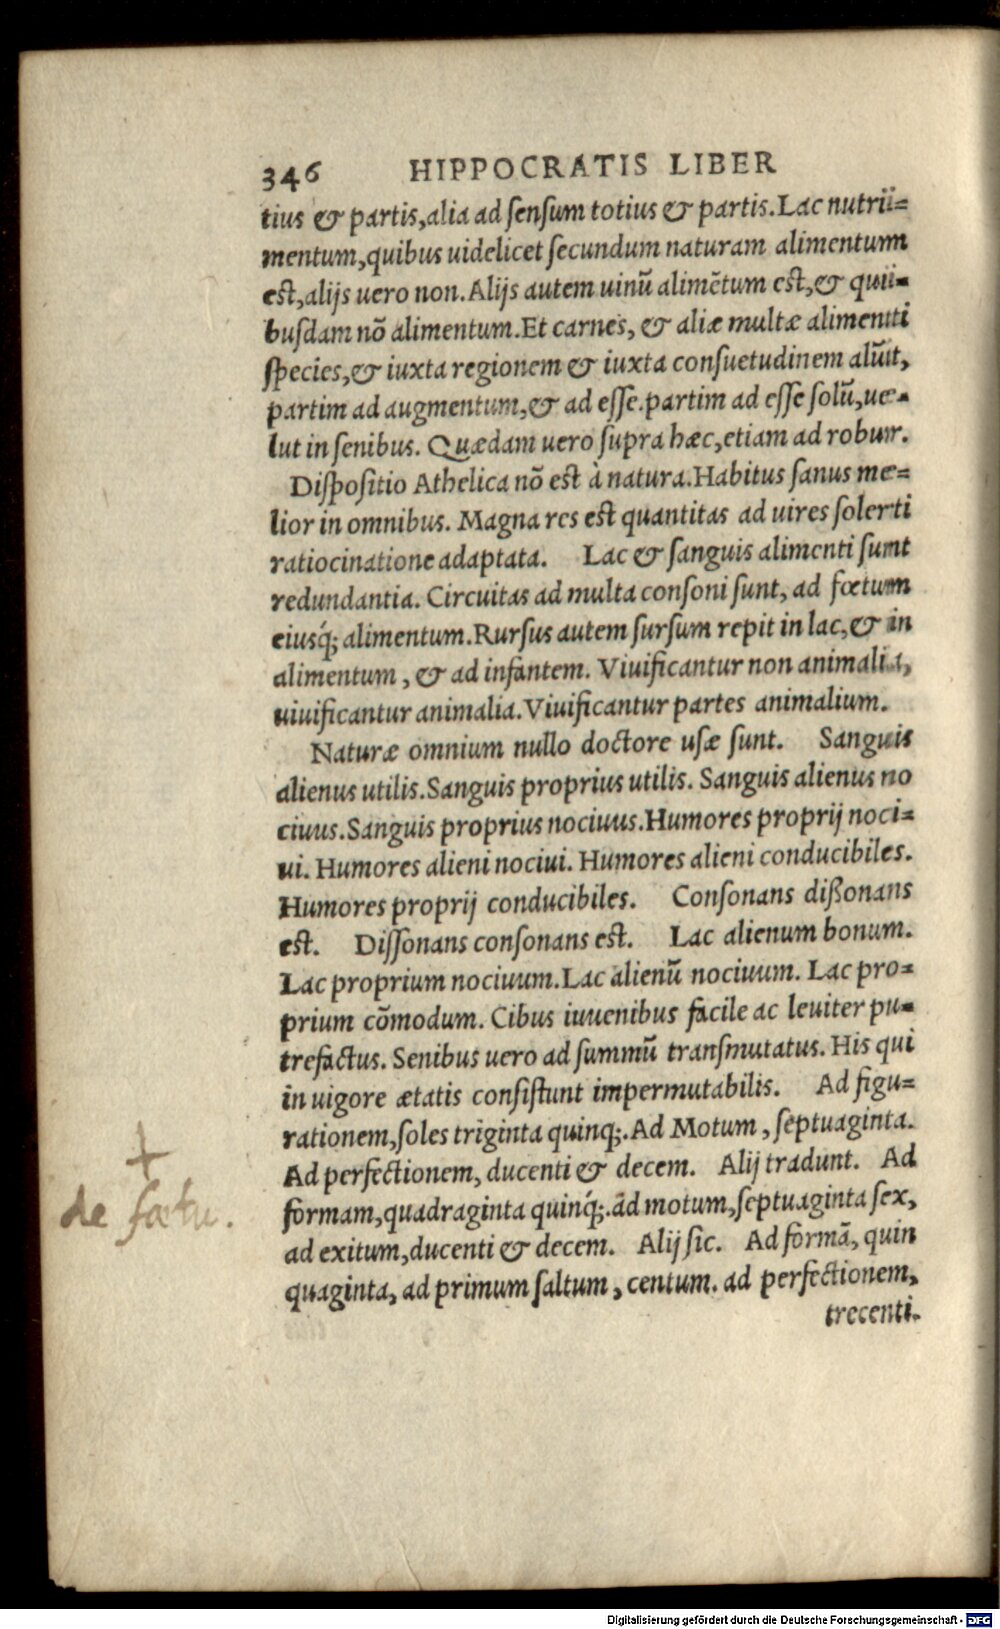 346 HIPPOCRATIS LIBER
tius & partis,alia ad sensum totius & partis.Lac nutri=
mentum,quibus uidelicet secundum naturam alimentum
est,alijs uero non.Alijs autem uinū alimētum est,& qui=
busdam nō alimentum.Et carnes, & aliæ multæ alimenti
species,& iuxta regionem & iuxta consuetudinem alūt,
partim ad augmentum,& ad esse.partim ad esse solū,ue=
lut in senibus. Quædam uero supra hæc,etiam ad robur.
Dispositio Athelica nō est à natura.Habitus sanus me=
lior in omnibus. Magna res est quantitas ad uires solerti
ratiocinatione adaptata. Lac & sanguis alimenti sunt
redundantia. Circuitas ad multa consoni sunt, ad fœtum
eiusq́; alimentum.Rursus autem sursum repit in lac,& in
alimentum, & ad infantem. Viuificantur non animalia,
uiuificantur animalia.Viuificantur partes animalium.
Naturæ omnium nullo doctore usæ sunt. Sanguis
alienus utilis.Sanguis proprius utilis. Sanguis alienus no
ciuus.Sanguis proprius nociuus.Humores proprij noci=
ui. Humores alieni nociui. Humores alieni conducibiles.
Humores proprij conducibiles. Consonans dißonans
est. Dissonans consonans est. Lac alienum bonum.
Lac proprium nociuum.Lac alienū nociuum. Lac pro=
prium cōmodum. Cibus iuuenibus facile ac leuiter pu=
trefactus. Senibus uero ad summū transmutatus. His qui
in uigore ætatis consistunt impermutabilis. Ad figu=
rationem,soles triginta quinq;.Ad Motum, septuaginta.
Ad perfectionem, ducenti & decem. Alij tradunt. Ad
formam,quadraginta quinq́;.ad motum,septuaginta sex,
ad exitum,ducenti & decem. Alij sic. Ad formā, quin
quaginta, ad primum saltum, centum. ad perfectionem,
trecenti.
+
de fœtu.
Digitalisierung gefördert durch die Deutsche Forschungsgemeinschaft - DFG